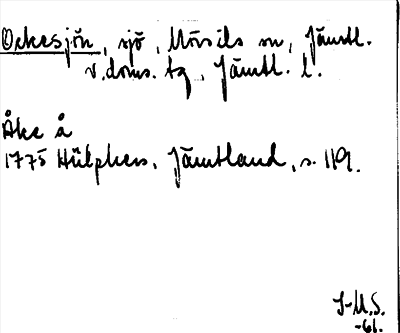 Ockesjön, sjö, Mörsils sn, Jämtl.
v. doms. tg, Jämtl. l.
Åke å
1775 Hülphers, Jämtland, s. 119.
J-M.S.
-61.